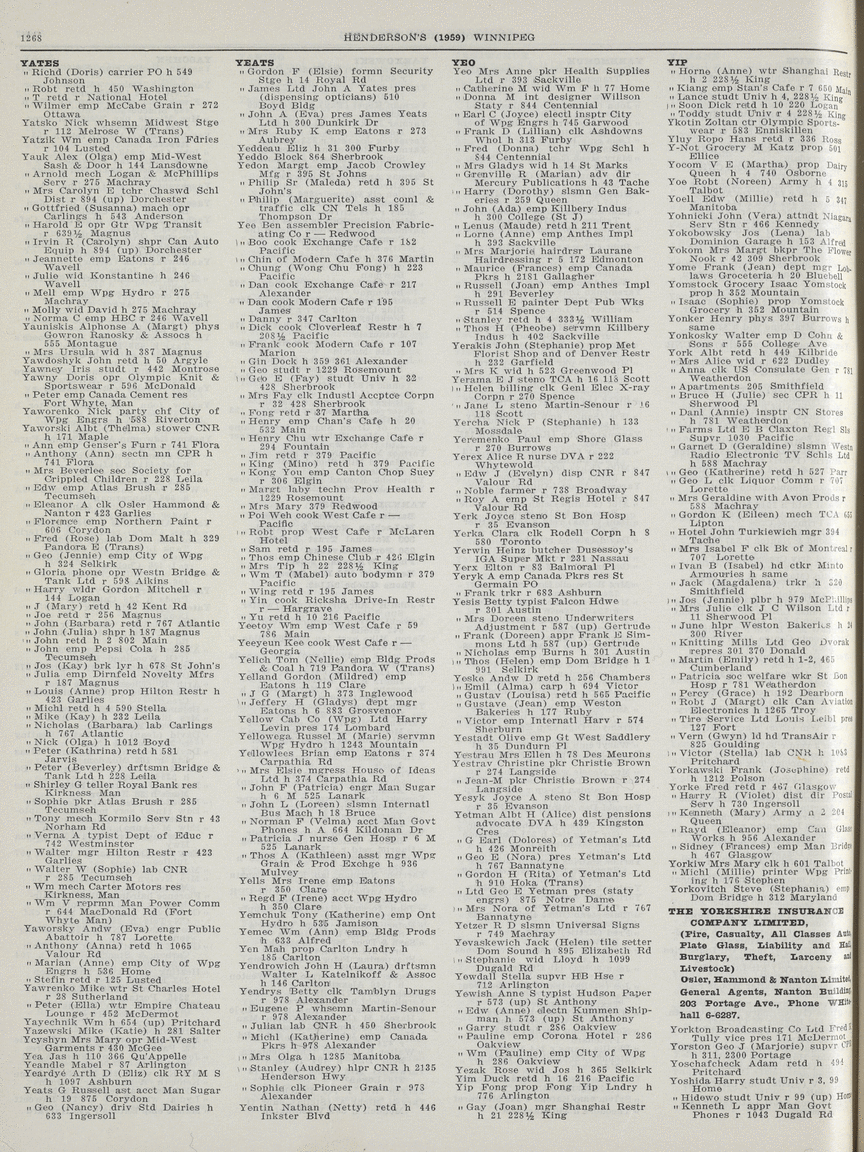 1268
HENDERSON'S (1959) WINNIPEG
YATES
" Richd (Doris) carrier PO h 549
Johnson
" Robt retd h 450 Washington
" T retd r National Hotel
" Wilmer emp McCabe Grain r 272
Ottawa
Yatsko Nick whsemn Midwest Stge
r 112 Melrose W (Trans)
Yatzik Wm emp Canada Iron Fdries
r 104 Lusted
Yauk Alex (Olga) emp Mid-West
Sash & Door h 144 Lansdowne
" Arnold mech Logan & McPhillips
Serv r 275 Machray
" Mrs Carolyn E tchr Chaswd Schl
Dist r 894 (up) Dorchester
" Gottfried (Susanna) mach opr
Carlings h 543 Anderson
" Harold E opr Gtr Wpg Transit
r 639½ Magnus
" Irvin R (Carolyn) shpr Can Auto
Equip h 894 (up) Dorchester
" Jeannette emp Eatons r 246
Wavell
" Julie wid Konstantine h 246
Wavell
" Mell emp Wpg Hydro r 275
Machray
" Molly wid David h 275 Machray
" Norma C emp HBC r 246 Wavell
Yauniskis Alphonse A (Margt) phys
Gowron Ranosky & Assocs h
555 Montague
" Mrs Ursula wid h 387 Magnus
Yawdoshyk John retd h 50 Argyle
Yawney Iris studt r 442 Montrose
Yawny Doris opr Olympic Knit &
Sportswear r 596 McDonald
" Peter emp Canada Cement res
Fort Whyte, Man
Yaworenko Nick party chf City of
Wpg Engrs h 588 Riverton
Yaworski Albt (Thelma) stower CNR
h 171 Maple
" Ann emp Genser's Furn r 741 Flora
" Anthony (Ann) sectn mn CPR h
741 Flora
" Mrs Beverlee sec Society for
Crippled Children r 228 Leila
" Edw emp Atlas Brush r 285
Tecumseh
" Eleanor A clk Osler Hammond &
Nanton r 423 Garlies
" Florence emp Northern Paint r
606 Corydon
" Fred (Rose) lab Dom Malt h 329
Pandora E (Trans)
" Geo (Jennie) emp City of Wpg
h 324 Selkirk
" Gloria phone opr Westn Bridge &
Tank Ltd r 598 Aikins
" Harry wldr Gordon Mitchell r
144 Logan
" J (Mary) retd h 42 Kent Rd
" Joe retd r 256 Magnus
" John (Barbara) retd r 767 Atlantic
" John (Julia) shpr h 187 Magnus
" John retd h 2 802 Main
" John emp Pepsi Cola h 285
Tecumseh
" Jos (Kay) brk lyr h 678 St John's
" Julia emp Dirnfeld Novelty Mfrs
r 187 Magnus
" Louis (Anne) prop Hilton Restr h
423 Garlies
" Michl retd h 4 590 Stella
" Mike (Kay) h 232 Leila
" Nicholas (Barbara) lab Carlings
h 767 Atlantic
" Nick (Olga) h 1012 Boyd
" Peter (Kathrina) retd h 581
Jarvis
" Peter (Beverley) drftsmn Bridge &
Tank Ltd h 228 Leila
" Shirley G teller Royal Bank res
Kirkness Man
" Sophie pkr Atlas Brush r 285
Tecumseh
" Tony mech Kormilo Serv Stn r 43
Norhan Rd
" Verna A typist Dept of Educ r
742 Westminster
" Walter mgr Hilton Restr r 423
Garlies
" Walter W (Sophie) lab CNR
r 285 Tecumseh
" Wm mech Carter Motors res
Kirkness, Man
" Wm V repmn Man Power Comm
r 644 MacDonald Rd (Fort
Whyte Man)
Yaworsky Andw (Eva) engr Public
Abattoir h 787 Lorette
" Anthony (Anna) retd h 1065
Valour Rd
" Marian (Anne) emp City of Wpg
Engrs h 536 Home
" Stefin retd r 125 Lusted
Yawrenko Mike wtr St Charles Hotel
r 28 Sutherland
" Peter (Ella) wtr Empire Chateau
Lounge r 452 McDermot
Yayechnik Wm h 654 (up) Pritchard
Yazewski Mike (Katie) h 281 Salter
Ycyshyn Mrs Mary opr Mid-West
Garments r 430 McGee
Yea Jas h 110 366 Qu'Appelle
Yeandle Mabel r 87 Arlington
Yeardye Arth D (Eliz) clk RY M S
h 1097 Ashburn
Yeats G Russell ast acct Man Sugar
h 19 875 Corydon
" Geo (Nancy) driv Std Dairies h
633 Ingersoll
YEATS
" Gordon F (Elsie) formn Security
Stge h 14 Royal Rd
" James Ltd John A Yates pres
(dispensing opticians) 510
Boyd Bldg
" John A (Eva) pres James Yeats
Ltd h 300 Dunkirk Dr
" Mrs Ruby K emp Eatons r 273
Aubrey
Yeddeau Eliz h 31 300 Furby
Yeddo Block 864 Sherbrook
Yedon Margt emp Jacob Crowley
Mfg r 395 St Johns
" Philip Sr (Maleda) retd h 395 St
John's
" Philip (Marguerite) asst coml &
traffic clk CN Tels h 185
Thompson Dr
Yee Ben assembler Precision Fabric-
ating Co r — Redwood
" Boo cook Exchange Cafe r 182
Pacific
" Chin of Modern Cafe h 376 Martin
" Chung (Wong Chu Fong) h 223
Pacific
" Dan cook Exchange Cafe r 217
Alexander
" Dan cook Modern Cafe r 195
James
" Danny r 347 Carlton
" Dick cook Cloverleaf Restr h 7
208½ Pacific
" Frank cook Modern Cafe r 107
Marion
" Gin Dock h 359 361 Alexander
" Geo studt r 1229 Rosemount
" Geo E (Fay) studt Univ h 32
428 Sherbrook
" Mrs Fay clk Industl Accptce Corpn
r 32 428 Sherbrook
" Fong retd r 37 Martha
" Henry emp Chan's Cafe h 20
532 Main
" Henry Chu wtr Exchange Cafe r
294 Fountain
" Jim retd r 379 Pacific
" King (Mino) retd h 379 Pacific
" Kong You emp Canton Chop Suey
r 306 Elgin
" Margt laby techn Prov Health r
1229 Rosemount
" Mrs Mary 379 Redwood
" Poi Weh cook West Cafe r —
Pacific
" Robt prop West Cafe r McLaren
Hotel
" Sam retd r 195 James
" Thos emp Chinese Club r 426 Elgin
" Mrs Tip h 22 228½ King
" Wm T (Mabel) auto bodymn r 379
Pacific
" Wing retd r 195 James
" Yin cook Ricksha Drive-In Restr
r — Hargrave
" Yu retd h 10 216 Pacific
Yeetoy Wm emp West Cafe r 59
786 Main
Yeeyeun Kee cook West Cafe r —
Georgia
Yelich Tom (Nellie) emp Bldg Prods
& Coal h 719 Pandora W (Trans)
Yelland Gordon (Mildred) emp
Eatons h 119 Clare
" J G (Margt) h 373 Inglewood
" Jeffery H (Gladys) dept mgr
Eatons h 6 883 Grosvenor
Yellow Cab Co (Wpg) Ltd Harry
Levin pres 174 Lombard
Yellowega Russel M (Marie) servmn
Wpg Hydro h 1243 Mountain
Yellowlees Brian emp Eatons r 374
Carpathia Rd
" Mrs Elsie mgress House of Ideas
Ltd h 374 Carpathia Rd
" John F (Patricia) engr Man Sugar
h 6 M 525 Lanark
" John L (Loreen) slsmn Internatl
Bus Mach h 18 Bruce
" Norman F (Velma) acct Man Govt
Phones h A 664 Kildonan Dr
" Patricia J nurse Gen Hosp r 6 M
525 Lanark
" Thos A (Kathleen) asst mgr Wpg
Grain & Prod Exchge h 936
Mulvey
Yells Mrs Irene emp Eatons
r 350 Clare
" Regd F (Irene) acct Wpg Hydro
h 350 Clare
Yemchuk Tony (Katherine) emp Ont
Hydro h 535 Jamison
Yemec Wm (Ann) emp Bldg Prods
h 633 Alfred
Yen Mah prop Carlton Lndry h
185 Carlton
Yendrowich John H (Laura) drftsmn
Walter L Katelnikoff & Assoc
h 146 Carlton
Yendrys Betty clk Tamblyn Drugs
r 978 Alexander
" Eugene P whsemn Martin-Senour
r 978 Alexander
" Julian lab CNR h 450 Sherbrook
" Michl (Katherine) emp Canada
Pkrs h 978 Alexander
" Mrs Olga h 1285 Manitoba
" Stanley (Audrey) hlpr CNR h 2135
Henderson Hwy
" Sophie clk Pioneer Grain r 978
Alexander
Yentin Nathan (Netty) retd h 446
Inkster Blvd
YEO
Yeo Mrs Anne pkr Health Supplies
Ltd r 393 Sackville
" Catherine M wid Wm F h 77 Home
" Donna M int designer Willson
Staty r 844 Centennial
" Earl C (Joyce) electl insptr City
of Wpg Engrs h 745 Garwood
" Frank D (Lillian) clk Ashdowns
Whol h 313 Furby
" Fred (Donna) tchr Wpg Schl h
844 Centennial
" Mrs Gladys wid h 14 St Marks
" Grenville R (Marian) adv dir
Mercury Publications h 43 Tache
" Harry (Dorothy) slsmn Gen Bak-
eries r 259 Queen
" John (Ada) emp Killbery Indus
h 300 College (St J)
" Lenus (Maude) retd h 211 Trent
" Lorne (Anne) emp Anthes Impl
h 393 Sackville
" Mrs Marjorie hairdrsr Laurane
Hairdressing r 5 172 Edmonton
" Maurice (Frances) emp Canada
Pkrs h 2181 Gallagher
" Russell (Joan) emp Anthes Impl
h 291 Beverley
" Russell E painter Dept Pub Wks
r 514 Spence
" Stanley retd h 4 333½ William
" Thos H (Pheobe) servmn Killbery
Indus h 402 Sackville
Yerakis John (Stephanie) prop Met
Florist Shop and of Denver Restr
h 232 Garfield
" Mrs K wid h 523 Greenwood Pl
Yerama E J steno TCA h 16 118 Scott
" Helen billing clk Genl Elec X-ray
Corpn r 270 Spence
" Jane L steno Martin-Senour r 16
118 Scott
Yercha Nick P (Stephanie) h 133
Mossdale
Yeremenko Paul emp Shore Glass
r 270 Burrows
Yerex Alice R nurse DVA r 222
Whytewold
" Edw J (Evelyn) disp CNR r 847
Valour Rd
" Noble farmer r 738 Broadway
" Roy A emp St Regis Hotel r 847
Valour Rd
Yerk Joyce steno St Bon Hosp
r 35 Evanson
Yerka Clara clk Rodell Corpn h 8
580 Toronto
Yerwin Heinz butcher Dusessoy's
IGA Super Mkt r 231 Nassau
Yerx Elton r 83 Balmoral Pl
Yeryk A emp Canada Pkrs res St
Germain PO
" Frank trkr r 683 Ashburn
Yesis Betty typist Falcon Hdwe
r 301 Austin
" Mrs Doreen steno Underwriters
Adjustment r 587 (up) Gertrude
" Frank (Doreen) appr Frank E Sim-
mons Ltd h 587 (up) Gertrude
" Nicholas emp Burns h 301 Austin
" Thos (Helen) emp Dom Bridge h 1
991 Selkirk
Yeske Andw D retd h 256 Chambers
" Emil (Alma) carp h 694 Victor
" Gustav (Louisa) retd h 565 Pacific
" Gustave (Jean) emp Weston
Bakeries h 177 Ruby
" Victor emp Internatl Harv r 574
Sherburn
Yestadt Olive emp Gt West Saddlery
h 35 Dundurn Pl
Yestrau Mrs Ellen h 78 Des Meurons
Yestrav Christine pkr Christie Brown
r 274 Langside
" Jean-M pkr Christie Brown r 274
Langside
Yesyk Joyce A steno St Bon Hosp
r 35 Evanson
Yetman Albt H (Alice) dist pensions
advocate DVA h 439 Kingston
Cres
" G Earl (Dolores) of Yetman's Ltd
h 426 Monreith
" Geo E (Nora) pres Yetman's Ltd
h 767 Bannatyne
" Gordon H (Rita) of Yetman's Ltd
h 910 Hoka (Trans)
" Ltd Geo E Yetman pres (staty
engrs) 875 Notre Dame
" Mrs Nora of Yetman's Ltd r 767
Bannatyne
Yetzer R D slsmn Universal Signs
r 749 Machray
Yevaskewich Jack (Helen) tile setter
Dom Sound h 895 Elizabeth Rd
" Stephanie wid Lloyd h 1099
Dugald Rd
Yewdall Stella supvr HB Hse r
712 Arlington
Yewish Anne S typist Hudson Paper
r 573 (up) St Anthony
" Edw (Anne) electn Kummen Ship-
man h 573 (up) St Anthony
" Garry studt r 286 Oakview
" Pauline emp Corona Hotel r 286
Oakview
" Wm (Pauline) emp City of Wpg
h 286 Oakview
Yezak Rose wid Jos h 365 Selkirk
Yim Duck retd h 16 216 Pacific
Yip Fong prop Fong Yip Lndry h
776 Arlington
" Gay (Joan) mgr Shanghai Restr
h 21 228½ King
YIP
" Horne (Anne) wtr Shanghai Restr
h 2 228½ King
" Kiang emp Stan's Cafe r 7 650 Main
" Lance studt Univ h 4, 228½ King
" Soon Dick retd h 10 220 Logan
" Toddy studt Univ r 4 228½ King
Ykotin Zoltan ctr Olympic Sports-
wear r 583 Enniskillen
Yluy Ropo Hans retd r 336 Ross
Y-Not Grocery M Katz prop 501
Ellice
Yocom V E (Martha) prop Dairy
Queen h 4 740 Osborne
Yoe Robt (Noreen) Army h 4 315
Talbot
Yoell Edw (Millie) retd h 5 347
Manitoba
Yohnicki John (Vera) attndt Niagara
Serv Stn r 466 Kennedy
Yokobowsky Jos (Lena) lab
Dominion Garage h 153 Alfred
Yokom Mrs Margt bkpr The Flower
Nook r 42 309 Sherbrook
Yome Frank (Jean) dept mgr Lob-
laws Groceteria h 20 Bluebell
Yomstock Grocery Isaac Yomstock
prop h 352 Mountain
" Isaac (Sophie) prop Yomstock
Grocery h 352 Mountain
Yonker Henry phys 397 Burrows h
same
Yonkosky Walter emp D Cohn &
Sons r 555 College Ave
York Albt retd h 449 Kilbride
" Mrs Alice wid r 622 Dudley
" Anna clk US Consulate Gen r 781
Weatherdon
" Apartments 205 Smithfield
" Bruce H (Julie) sec CPR h 11
Sherwood Pl
" Danl (Annie) insptr CN Stores
h 781 Weatherdon
" Farms Ltd E B Claxton Regl Sls
Supvr 1030 Pacific
" Garnet D (Geraldine) slsmn Westn
Radio Electronic TV Schls Ltd
h 588 Machray
" Geo (Katherine) retd h 527 Parr
" Geo L clk Liquor Comm r 707
Lorette
" Mrs Geraldine with Avon Prods r
588 Machray
" Gordon K (Eileen) mech TCA
Lipton
" Hotel John Turkiewich mgr 394
Tache
" Mrs Isabel F clk Bk of Montreal r
707 Lorette
" Ivan B (Isabel) hd ctkr Minto
Armouries h same
" Jack (Magdalena) trkr h 320
Smithfield
" Jos (Jennie) plbr h 979 McPhillips
" Mrs Julie clk J C Wilson Ltd r
11 Sherwood Pl
" June hlpr Weston Bakeries h
300 River
" Knitting Mills Ltd Geo Dvorak
repres 301 370 Donald
" Martin (Emily) retd h 1-2, 465
Cumberland
" Patricia soc welfare wkr St Bon
Hosp r 781 Weatherdon
" Percy (Grace) h 192 Dearborn
" Robt J (Margt) clk Can Aviation
Electronics h 1265 Troy
" Tire Service Ltd Louis Leibl pres
127 Fort
" Vern (Gwyn) ld hd TransAir r
825 Goulding
" Victor (Stella) lab CNR h 1083
Pritchard
Yorkawski Frank (Josephine) retd
h 1212 Polson
Yorke Fred retd r 467 Glasgow
" Harry R (Violet) dist dir Postal
Serv h 730 Ingersoll
" Kenneth (Mary) Army h 2 204
Queen
" Rayd (Eleanor) emp Can Glass
Works h 956 Alexander
" Sidney (Frances) emp Man Bridge
h 467 Glasgow
Yorkiw Mrs Mary clk h 601 Talbot
" Michl (Millie) printer Wpg Print-
ing h 176 Stephen
Yorkovitch Steve (Stephania) emp
Dom Bridge h 312 Maryland
THE YORKSHIRE INSURANCE
COMPANY LIMITED,
(Fire, Casualty, All Classes Auto,
Plate Glass, Liability and Hail
Burglary, Theft, Larceny and
Livestock)
Osler, Hammond & Nanton Limited,
General Agents, Nanton Building
203 Portage Ave., Phone WHite-
hall 6-6287.
Yorkton Broadcasting Co Ltd Fred
Tully vice pres 171 McDermot
Yorston Geo J (Marjorie) supvr
h 311, 2300 Portage
Yoschafcheck Adam retd h 494
Pritchard
Yoshida Harry studt Univ r 3, 99
Home
" Hidewo studt Univ r 99 (up) Home
" Kenneth L appr Man Govt
Phones r 1043 Dugald Rd